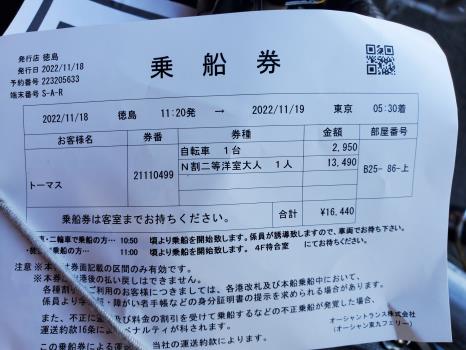 発行店 徳島
発行日 2022/11/18
予約番号 223205633
端末番号 S-A-R
乗船券
2022/11/18 徳島 11:20発 → 2022/11/19 東京 05:30着
お客様名 券番 券種 金額 部屋番号
トーマス 21110499 自転車 1台 2,950 B25- 86-上
N割二等洋室大人 1人 13,490
乗船券は客室までお持ちください。 合計 ¥16,440
・二輪車で乗船の方… 10:50 頃より乗船を開始致します。係員が誘導致しますので、車両でお待ち下さい。
乗船の方… 11:00 頃より乗船を開始致します。 4F待合室 にてお待ちください。
注意 ※本 券面記載の区間のみ有効です。
※本券 後の払い戻しはできません。
各種割 ご利用のお客様につきましては、各港改札及び本船乗船中において、
係員より 障がい者手帳などの身分証明書の提示を求められる場合があります。
また、不正に 及び料金の割引を受けて乗船するなどの不正乗船が発覚した場合、
運送約款16条に ペナルティが科されます。
この乗船券による運 当社の運送約款によります。
オーシャントランス株式会社
(オーシャン東九フェリー)